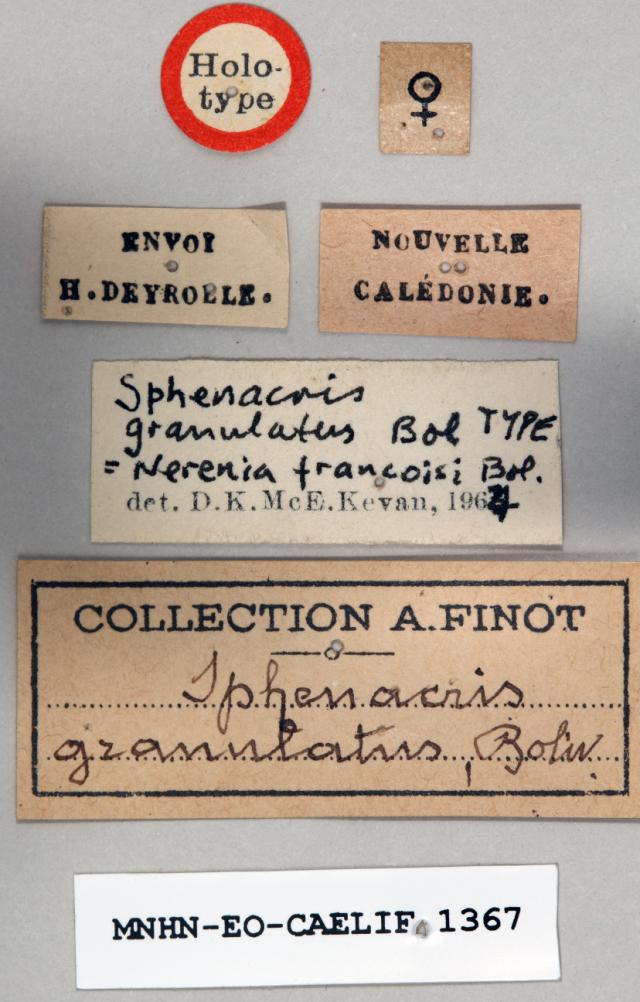 Holo-
type
♀
ENVOI
H. DEYROLLE.
NOUVELLE
CALÉDONIE.
Sphenacris
granulatus Bol TYPE
= Nerenia francoisi Bol.
det. D. K. McE. Kevan, 1964
COLLECTION A. FINOT
Sphenacris
granulatus, Boliv.
MNHN-EO-CAELIF 1367